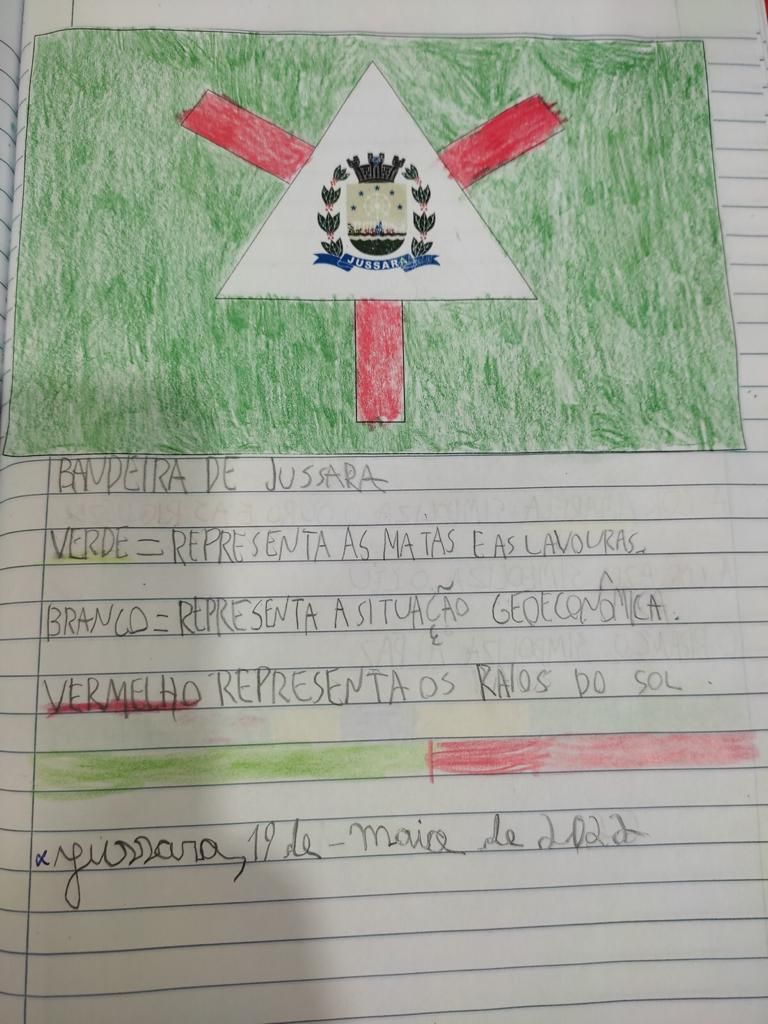 JUSSARA
BANDEIRA DE JUSSARA
VERDE = REPRESENTA AS MATAS E AS LAVOURAS.
BRANCO = REPRESENTA A SITUAÇÃO GEOECONÔMICA.
VERMELHO REPRESENTA OS RAIOS DO SOL.
Jussara, 19 de maio de 2022